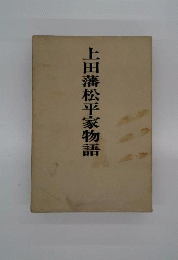 上田藩松平家物語